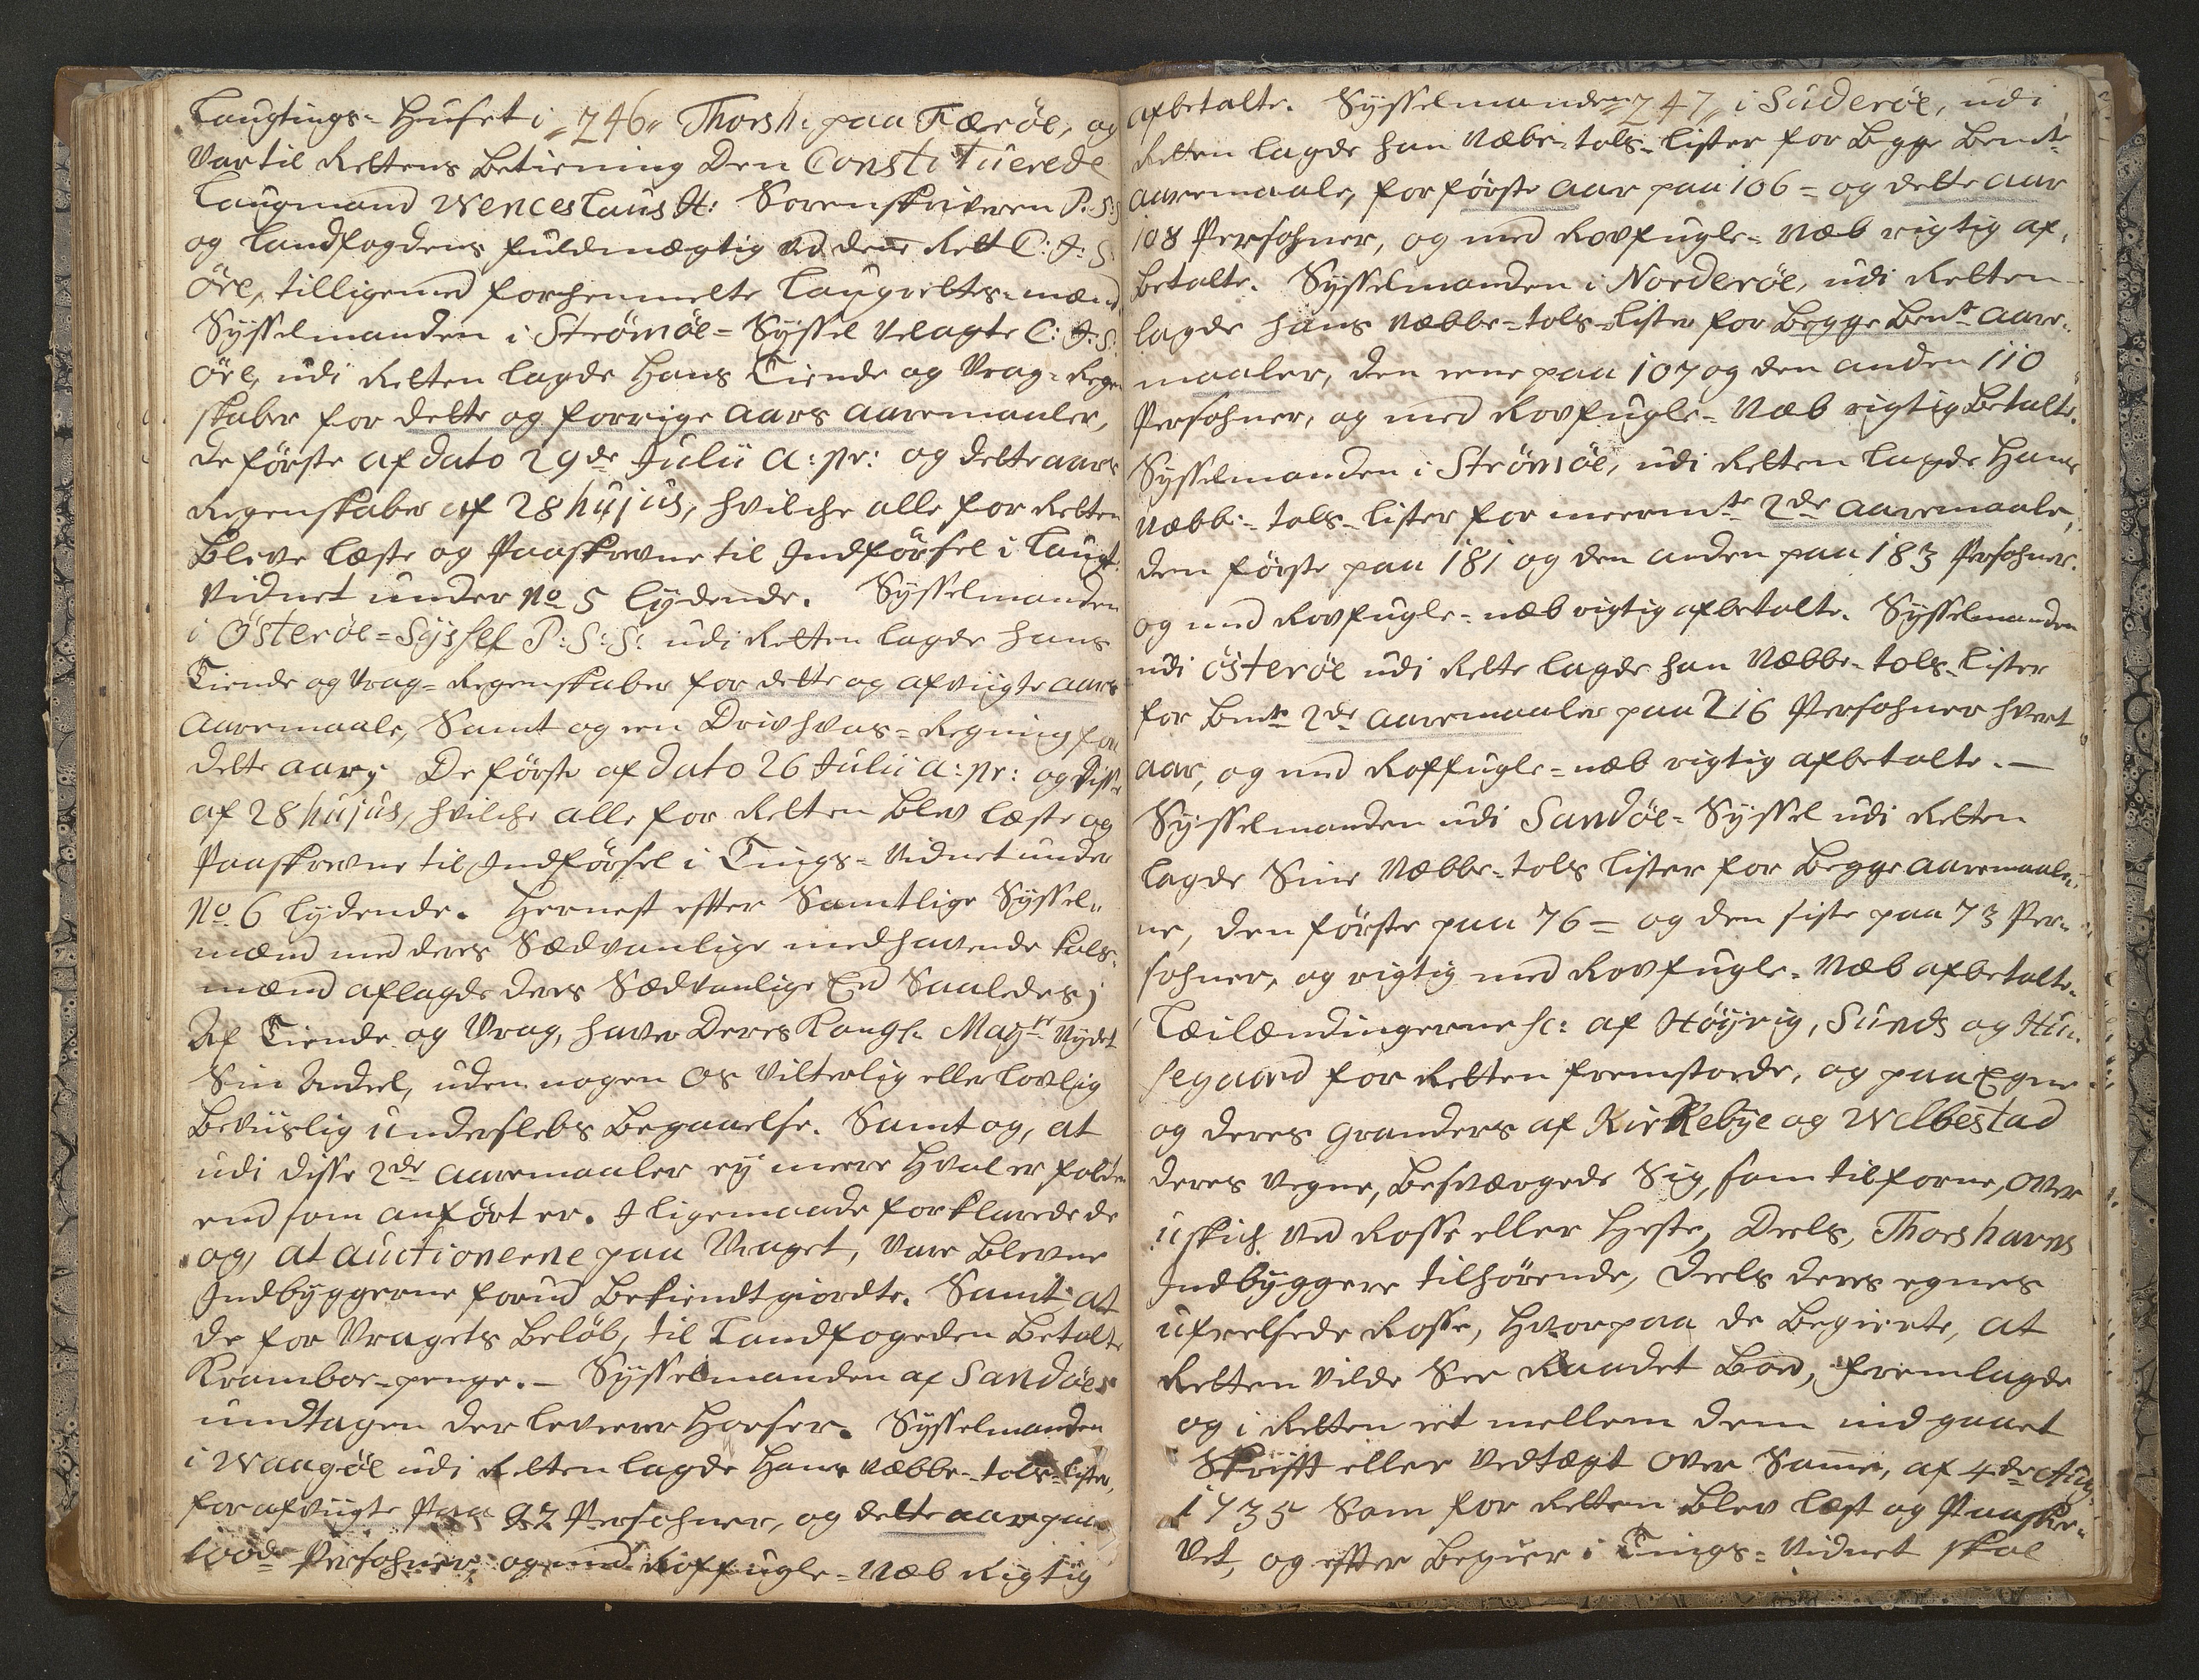 Laugtings-Huset i „246„ Thorsh: paa Færöe, og
Var til Rettens Betiening Den Constituerede
Laugmand Wenceslaus H: Sorenskriveren P: S: S
og Landfogdens fuldmægtig ved denne Rett C: J: S:
Öre, tilligemed forhenmelte Laugrettes-mænd,
Sÿsselmanden i Strömöe-Sÿssel Velagte C: J: S:
Öre, udi Retten lagde Hans Tiende og Vrag-Regen
skaber for dette og forrige aars aaremaaler,
De förste af dato 29de Julii a: pr: og dette aars
Regenskaber af 28 hujus, hvilche alle for Retten
Bleve læste og Paaskrevne til Indförsel i Laugt.
Vidnet under No 5 lÿdende. Sÿsselmanden
i Österöe-Sÿssel P: S: S: udi Retten lagde hans
Tiende og Vrag-Regenskaber for dette og afvigte aars
aaremaale, Samt og een Drivhvas-Regning for
dette aar; De förste af dato 26 Julii a: pr: og Siste
af 28 hujus, hvilche alle for Retten blev læste og
Paaskrevne til Indförsel i Tings-Vidnet under
No 6 lÿdende. Hernest efter Samtlige Sÿssel-
mænd med deres Sædvanlige medhavende tols-
mænd aflagde deres Sædvanlige Eed Saaledes;
Af Tiende og Vrag, haver Deres Kongl: Maytt Nydt
Sin Andeel, uden nogen os Vitterlig eller lovlig
Beviislig Underslebs Begaaelse. Samt og, at
udi disse 2de aaremaaler eÿ meere Hval er falden
end som anfört er. I ligemaade forklarede de
og, at auctionerne paa Vraget, vare blevne
Indbÿggerne forud Bekiendtgiordte. Samt, at
de for Vragets Belöb, til Landfogeden Betalte
Krambor-penge.- Sÿsselmanden af Sandöe
undtagen der leverer Hoeser. Sÿsselmanden
i Waagöe udi Retten lagde Hans Næbbe-tols-Lister,
for afvigte Paa 92 Persohner, og dette aar paa
100de Persohner, og med Roffugle-Næb Rigtig
afbetalte. Sÿsselmanden „247„ i Suderöe, udi
Retten lagde han Næbe-tols-lister for begge bemte
aaremaale, for förste aar paa 106 = og dette aar
108 Persohner, og med Rovfugle-Næb rigtig af-
betalte. Sÿsselmanden i Norderöe, udi Retten
lagde hans Næbbe-tols-Lister for begge bemt aare-
maaler, den eene paa 107 og den anden 110
Persohner, og med Rovfugle-Næb rigtig Betalte.
Sÿsselmanden i Strömöe, udi Retten lagde Hans
Næbbe-tols-lister for meermte 2de aaremaale,
den förste paa 181 og den anden paa 183 Persohner.
og med Rovfugle-næb rigtig afbetalte. Sÿsselmanden
udi Österöe udi Rette lagde han Næbbe-tols-Lister
for bemte 2de aaremaaler paa 216 Persohner hvert
aar, og med Roffugle-næb rigtig afbetalte.-
Sÿsselmanden udi Sandöe-Sÿssel udi Retten
lagde Sine Næbbe-tols lister for Begge aaremaale-
ne, den förste paa 76 = og den siste paa 73 Per-
sohner, og rigtig med Rovfugle-Næb afbetalte.
Leilændingerne sc: af Höÿvig, Sunds og Hu-
segaard for Retten fremstoede, og paa Egne
og deres granders af Kirkebÿe og Welbestad
deres Vegne, besværgede Sig, som tilforne, over
uskich ved Rosse eller Heste, Deels, Thorshavns
Indbÿggere tilhörende, deels deres egnes
ufreelsede Rosse, hvorpaa de begierte, at
Retten vilde See Raadet Bod, fremlagde
og i Retten et mellem dem indgaaet
Skrifft eller Vedtægt over Samme, af 4de Aug:
1735 Som for Retten blev læst og Paaskre-
vet, og efter begier i Tings-Vidnet skal